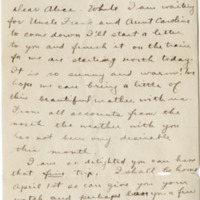 Dear Alice. While I am waiting
for Uncle Frank and Aunt Caroline
to come down I'll start a letter
to you and finish it on the train
for we are starting north today.
It is so sunny and warm! We
hope we can bring a little of
this beautiful weather with us.
From all accounts from the
north the weather with you
has not been very desirable
this month.
I am so delighted you can have
that fine trip. I shall be home
April 1st so can give you your
watch and perhaps you a few